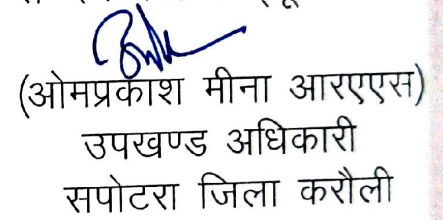 (ओमप्रकाश मीना आरएएस)
उपखण्ड अधिकारी
सपोटरा जिला करौली